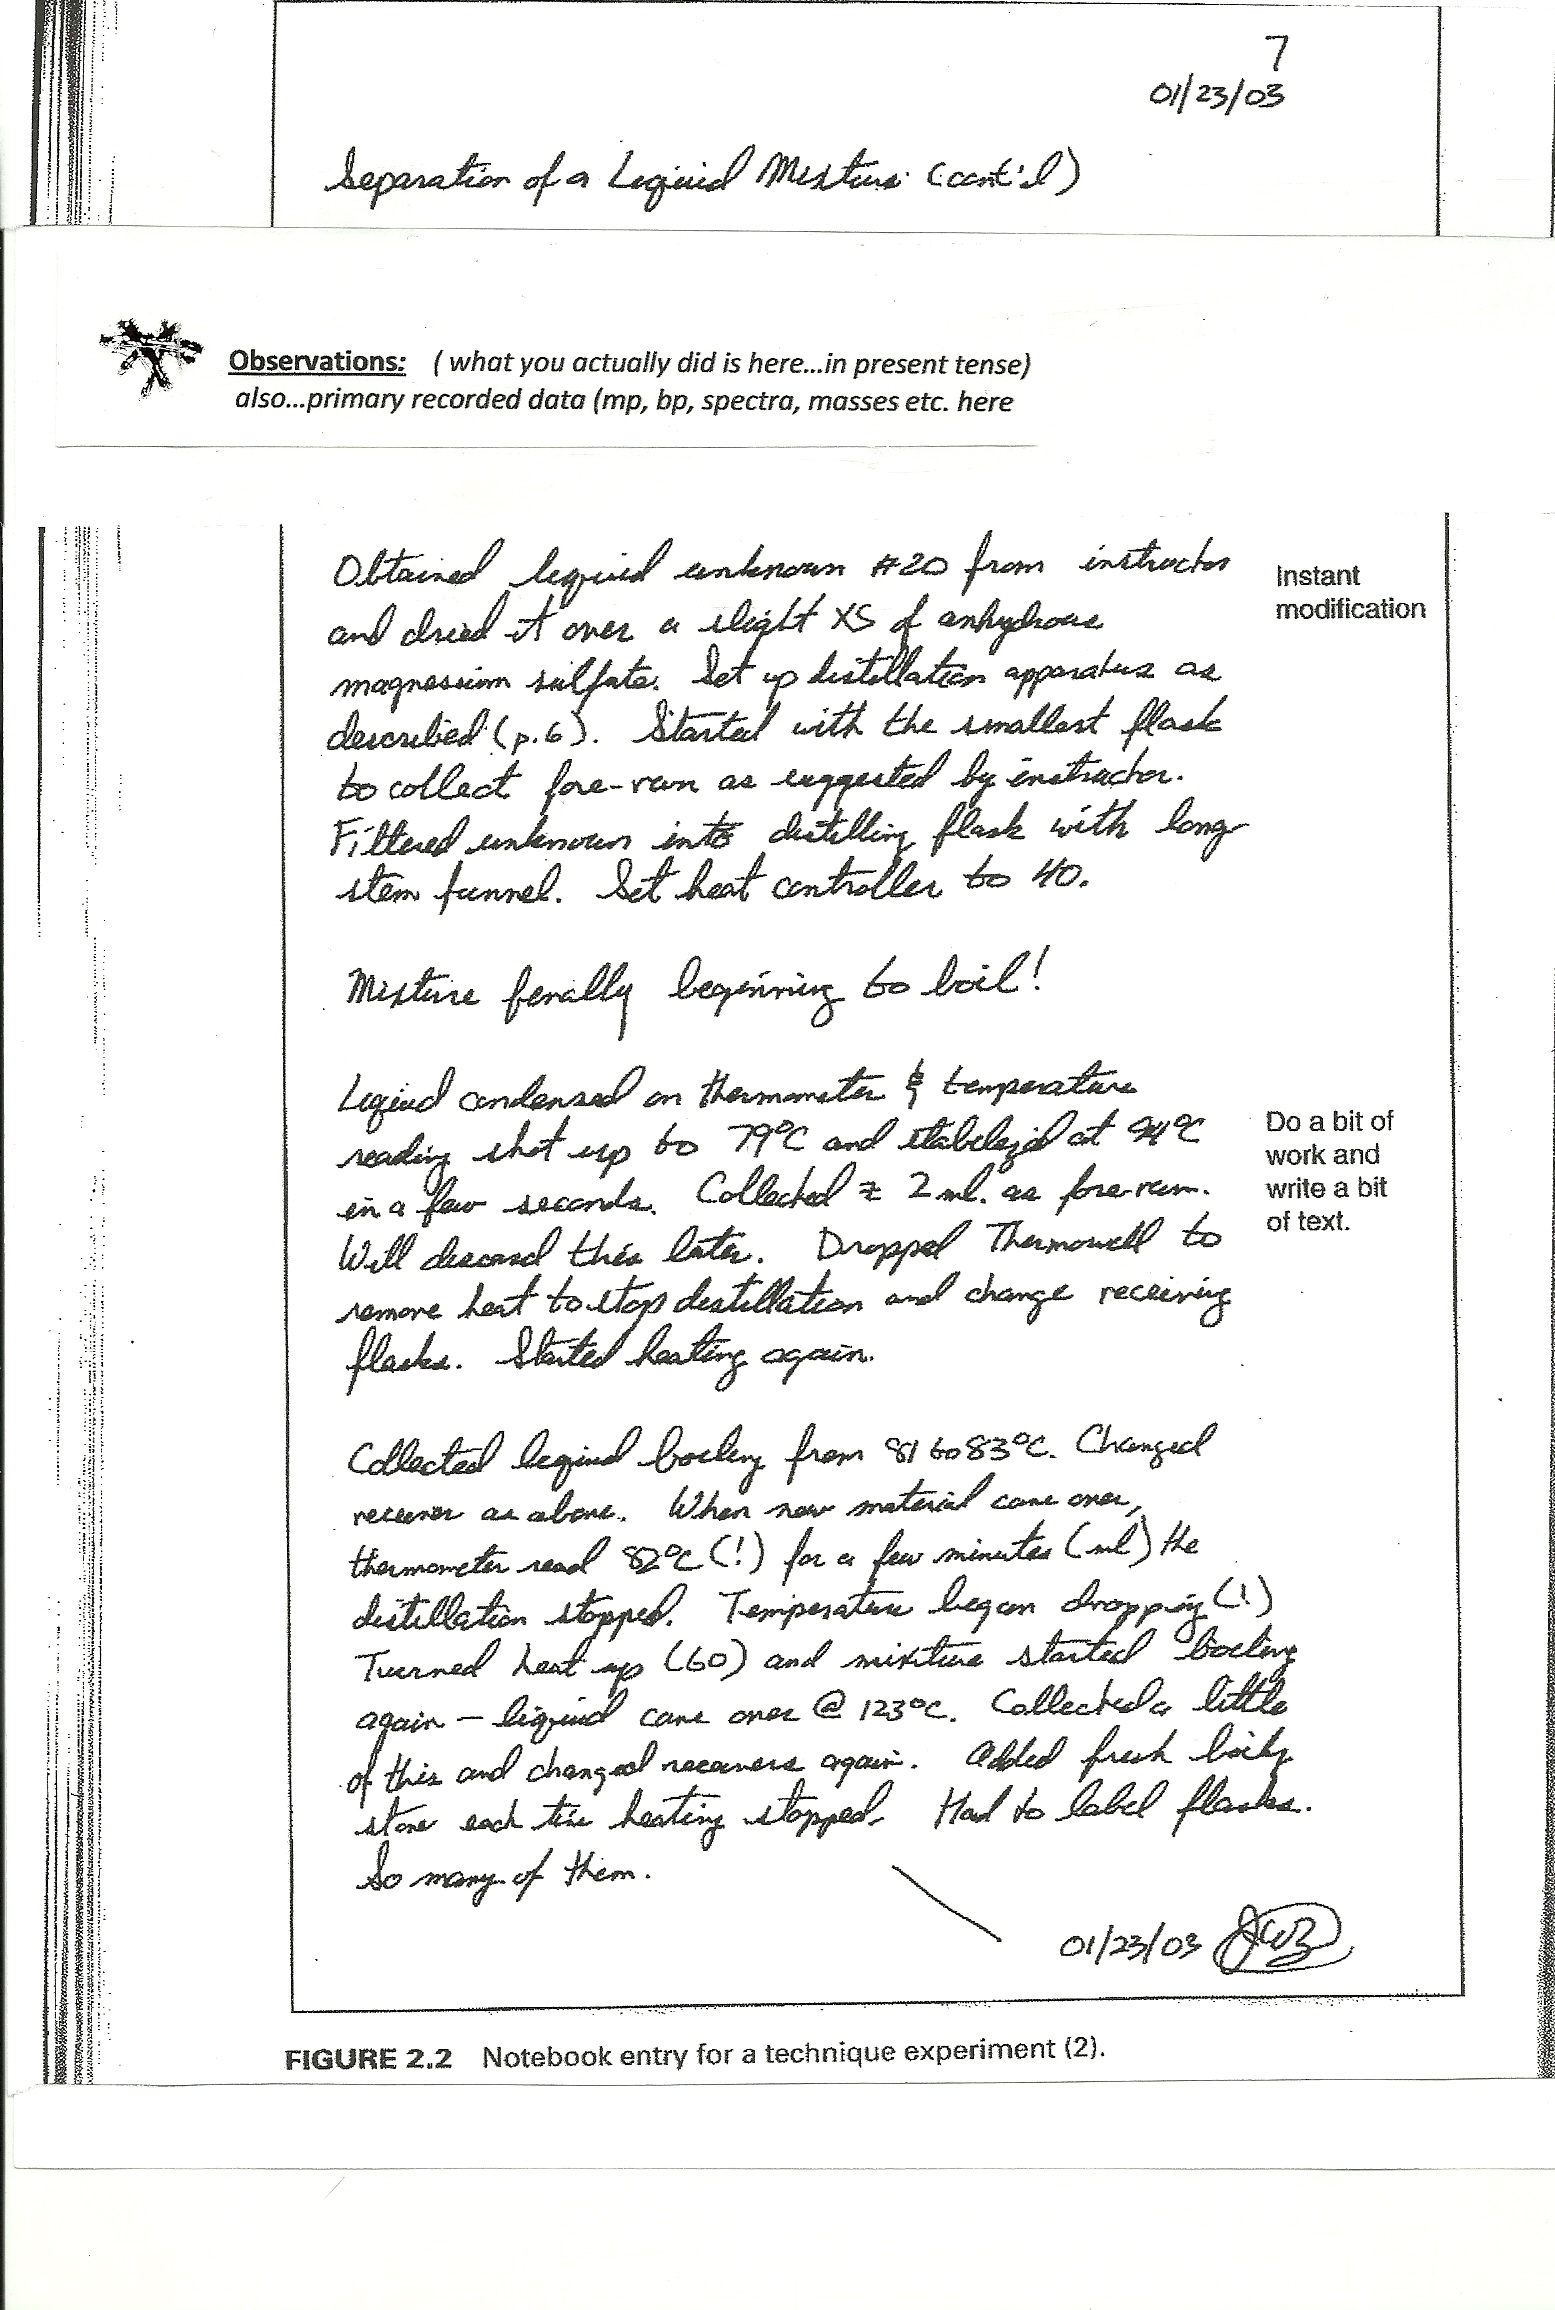 7
01/23/03
Separation of a Liquid Mixture (cont'd)
Observations: ( what you actually did is here...in present tense)
also...primary recorded data (mp, bp, spectra, masses etc. here
Obtained liquid unknown #20 from instructor
and dried it over a slight XS of anhydrous
magnesium sulfate. Set up distillation apparatus as
described (p.6). Started with the smallest flask
to collect fore-run as suggested by instructor.
Filtered unknown into distilling flask with long
stem funnel. Set heat controller to 40.
Instant
modification
Mixture finally beginning to boil!
Liquid condensed on thermometer & temperature
reading shot up to 79°C and stabilized at 94°C
in a few seconds. Collected ≈ 2 ml. as fore-run.
Will discard this later. Dropped Thermowell to
remove heat to stop distillation and change receiving
flasks. Started heating again.
Do a bit of
work and
write a bit
of text.
Collected liquid boiling from 81 to 83°C. Changed
receiver as above. When new material came over,
thermometer read 82°C (!) for a few minutes (ml) the
distillation stopped. Temperature began dropping (!)
Turned heat up (60) and mixture started boiling
again – liquid came over @ 123°C. Collected a little
of this and changed receivers again. Added fresh boiling
stone each time heating stopped. Had to label flasks.
So many of them.
01/23/03 JWZ
FIGURE 2.2 Notebook entry for a technique experiment (2).